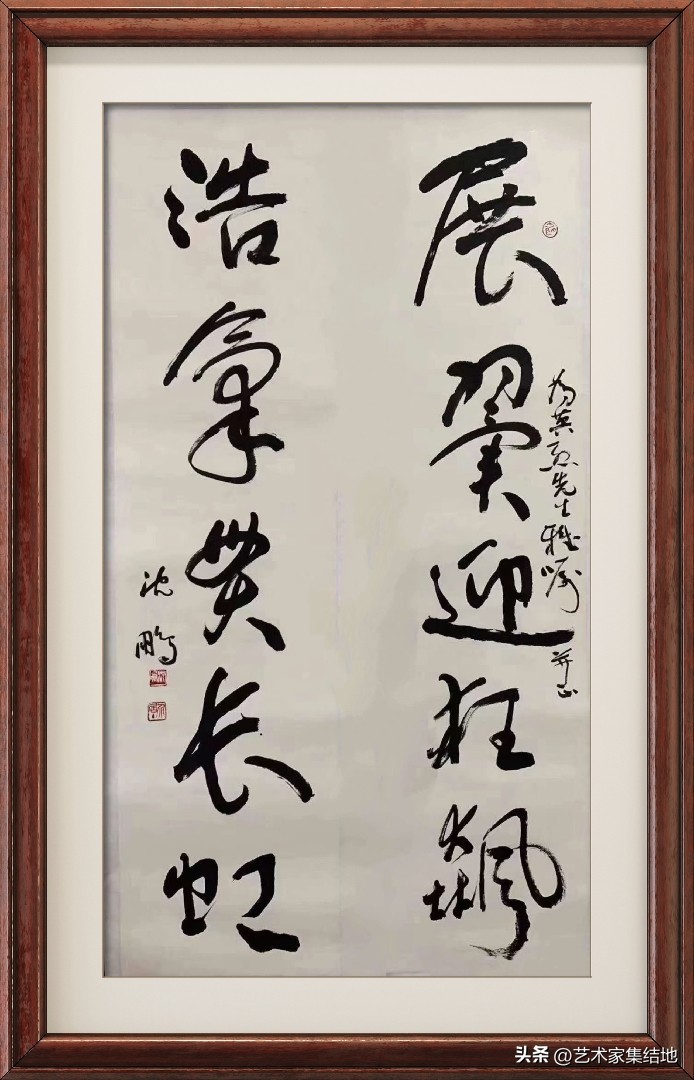 展翼迎狂飆
为英先生雅嘱并正
浩氣貫长虹
沈鹏
头条 @艺术家集结地